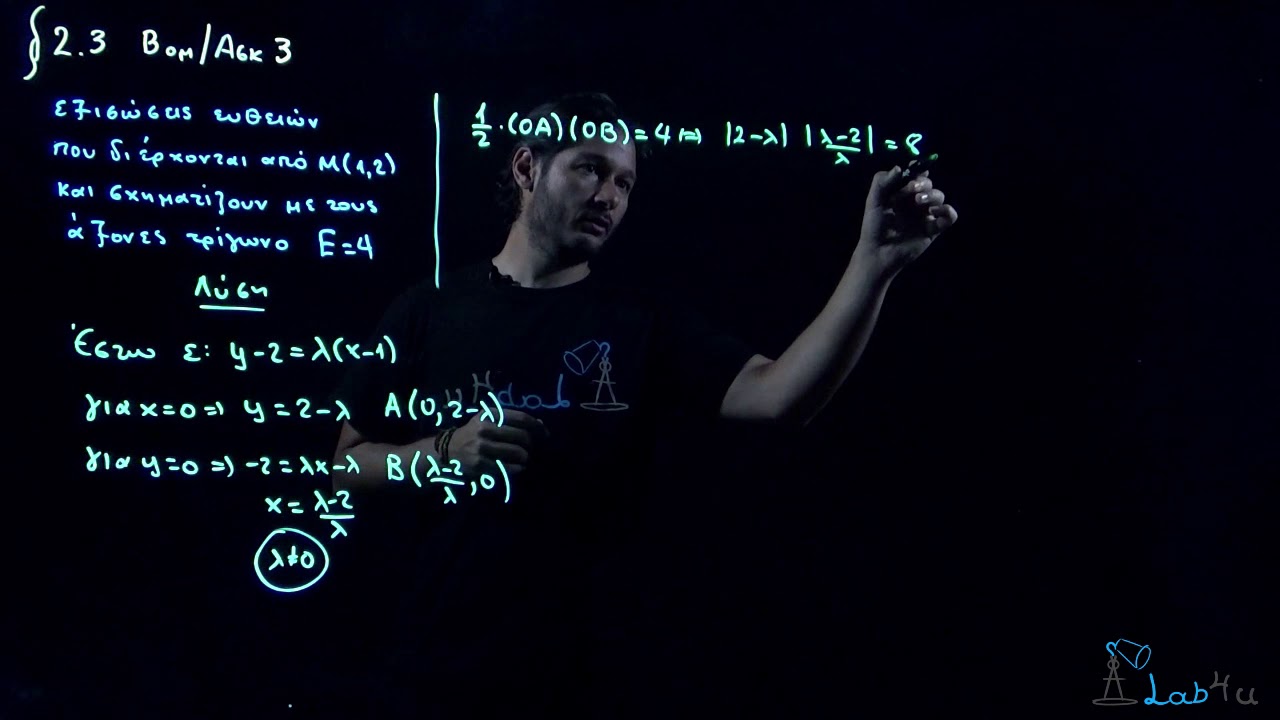 § 2.3 Βομ/Ασκ 3
εξισώσεις ευθειών
που διέρχονται από Μ(1,2)
και σχηματίζουν με τους
άξονες τρίγωνο Ε=4
Λύση
Έστω ε: y-2=λ(x-1)
για x=0 ⇒ y=2-λ A(0,2-λ)
για y=0 ⇒ -2=λx-λ B(\frac{λ-2}{λ},0)
x=\frac{λ-2}{λ}
λ≠0
\frac{1}{2}·(OA)(OB)=4 ⇔ |2-λ| |\frac{λ-2}{λ}|=8
Lab4u